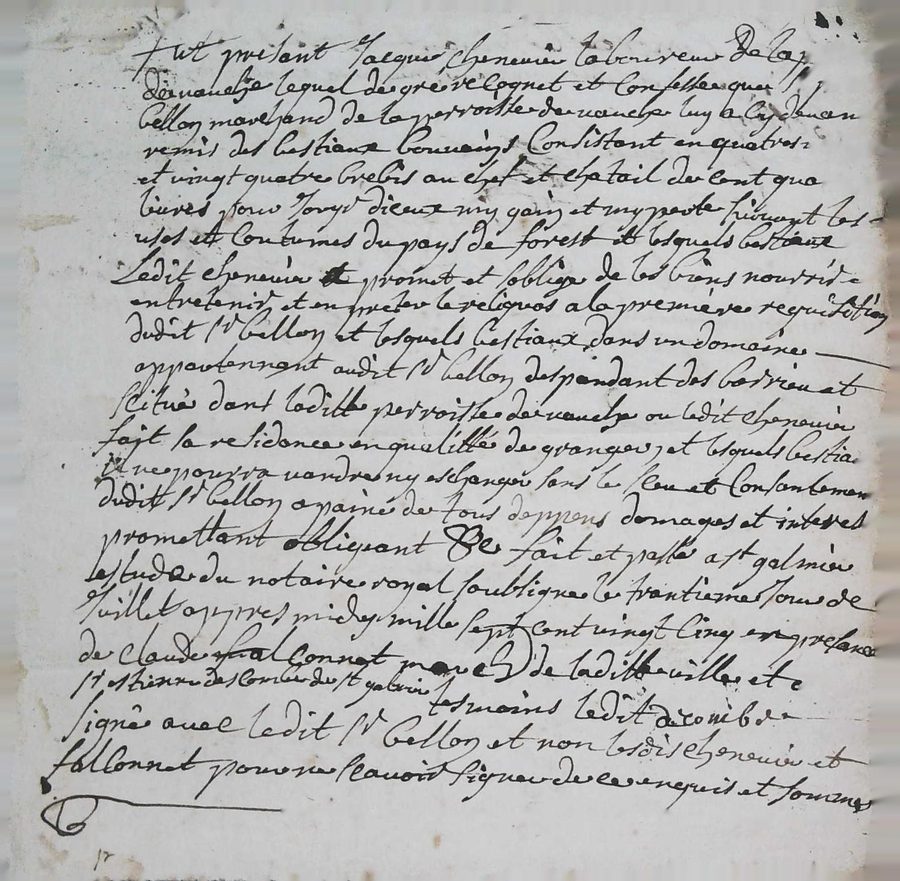 fut présant Jacques cheneviér laboureur De la p
de veauche lequel de gré recognet et Confesse que
bellon marchand de la perroisse de veauche luy a cy devan
remis des bestiaux bouvains Consistant en quatres
et vingt quatre brebis au chef et chatail de cent qua
livres pour yceux my gain et my perte suivant les
uses et Coutumes du pays de forest et lesquels bestiaux
Ledit chenevier promet et soblige de les biens nourrir
entretenir et en le reliquas a la première requisition
dudit Sr bellon et lesquels bestiaux dans un domaine
appartennent audit Sr bellon despandant des barrieu et
scitué dans laditte perroisse de veauche ou ledit chenevier
fait sa residance en qualitté de granger, et lesquels bestia
il ne pourra vandre ny eschanger sans le sceu et Consantemen
dudit Sr bellon a paine de tous deppens domages et interet
promettant obligeant &c fait et passé a st galmier
estude du notaire royal soubsigné le trantieme Jour de
Juillet appres midy mille sept cent vingt cinq en presance
de claude fal Connet march de laditte ville et
Sr estienne descombe de st galmier tesmoins ledit decombe
signé avec ledit Sr bellon et non lesdis chenevier et
fallonnet pour ne scavoir signer de ce enquis et sommés